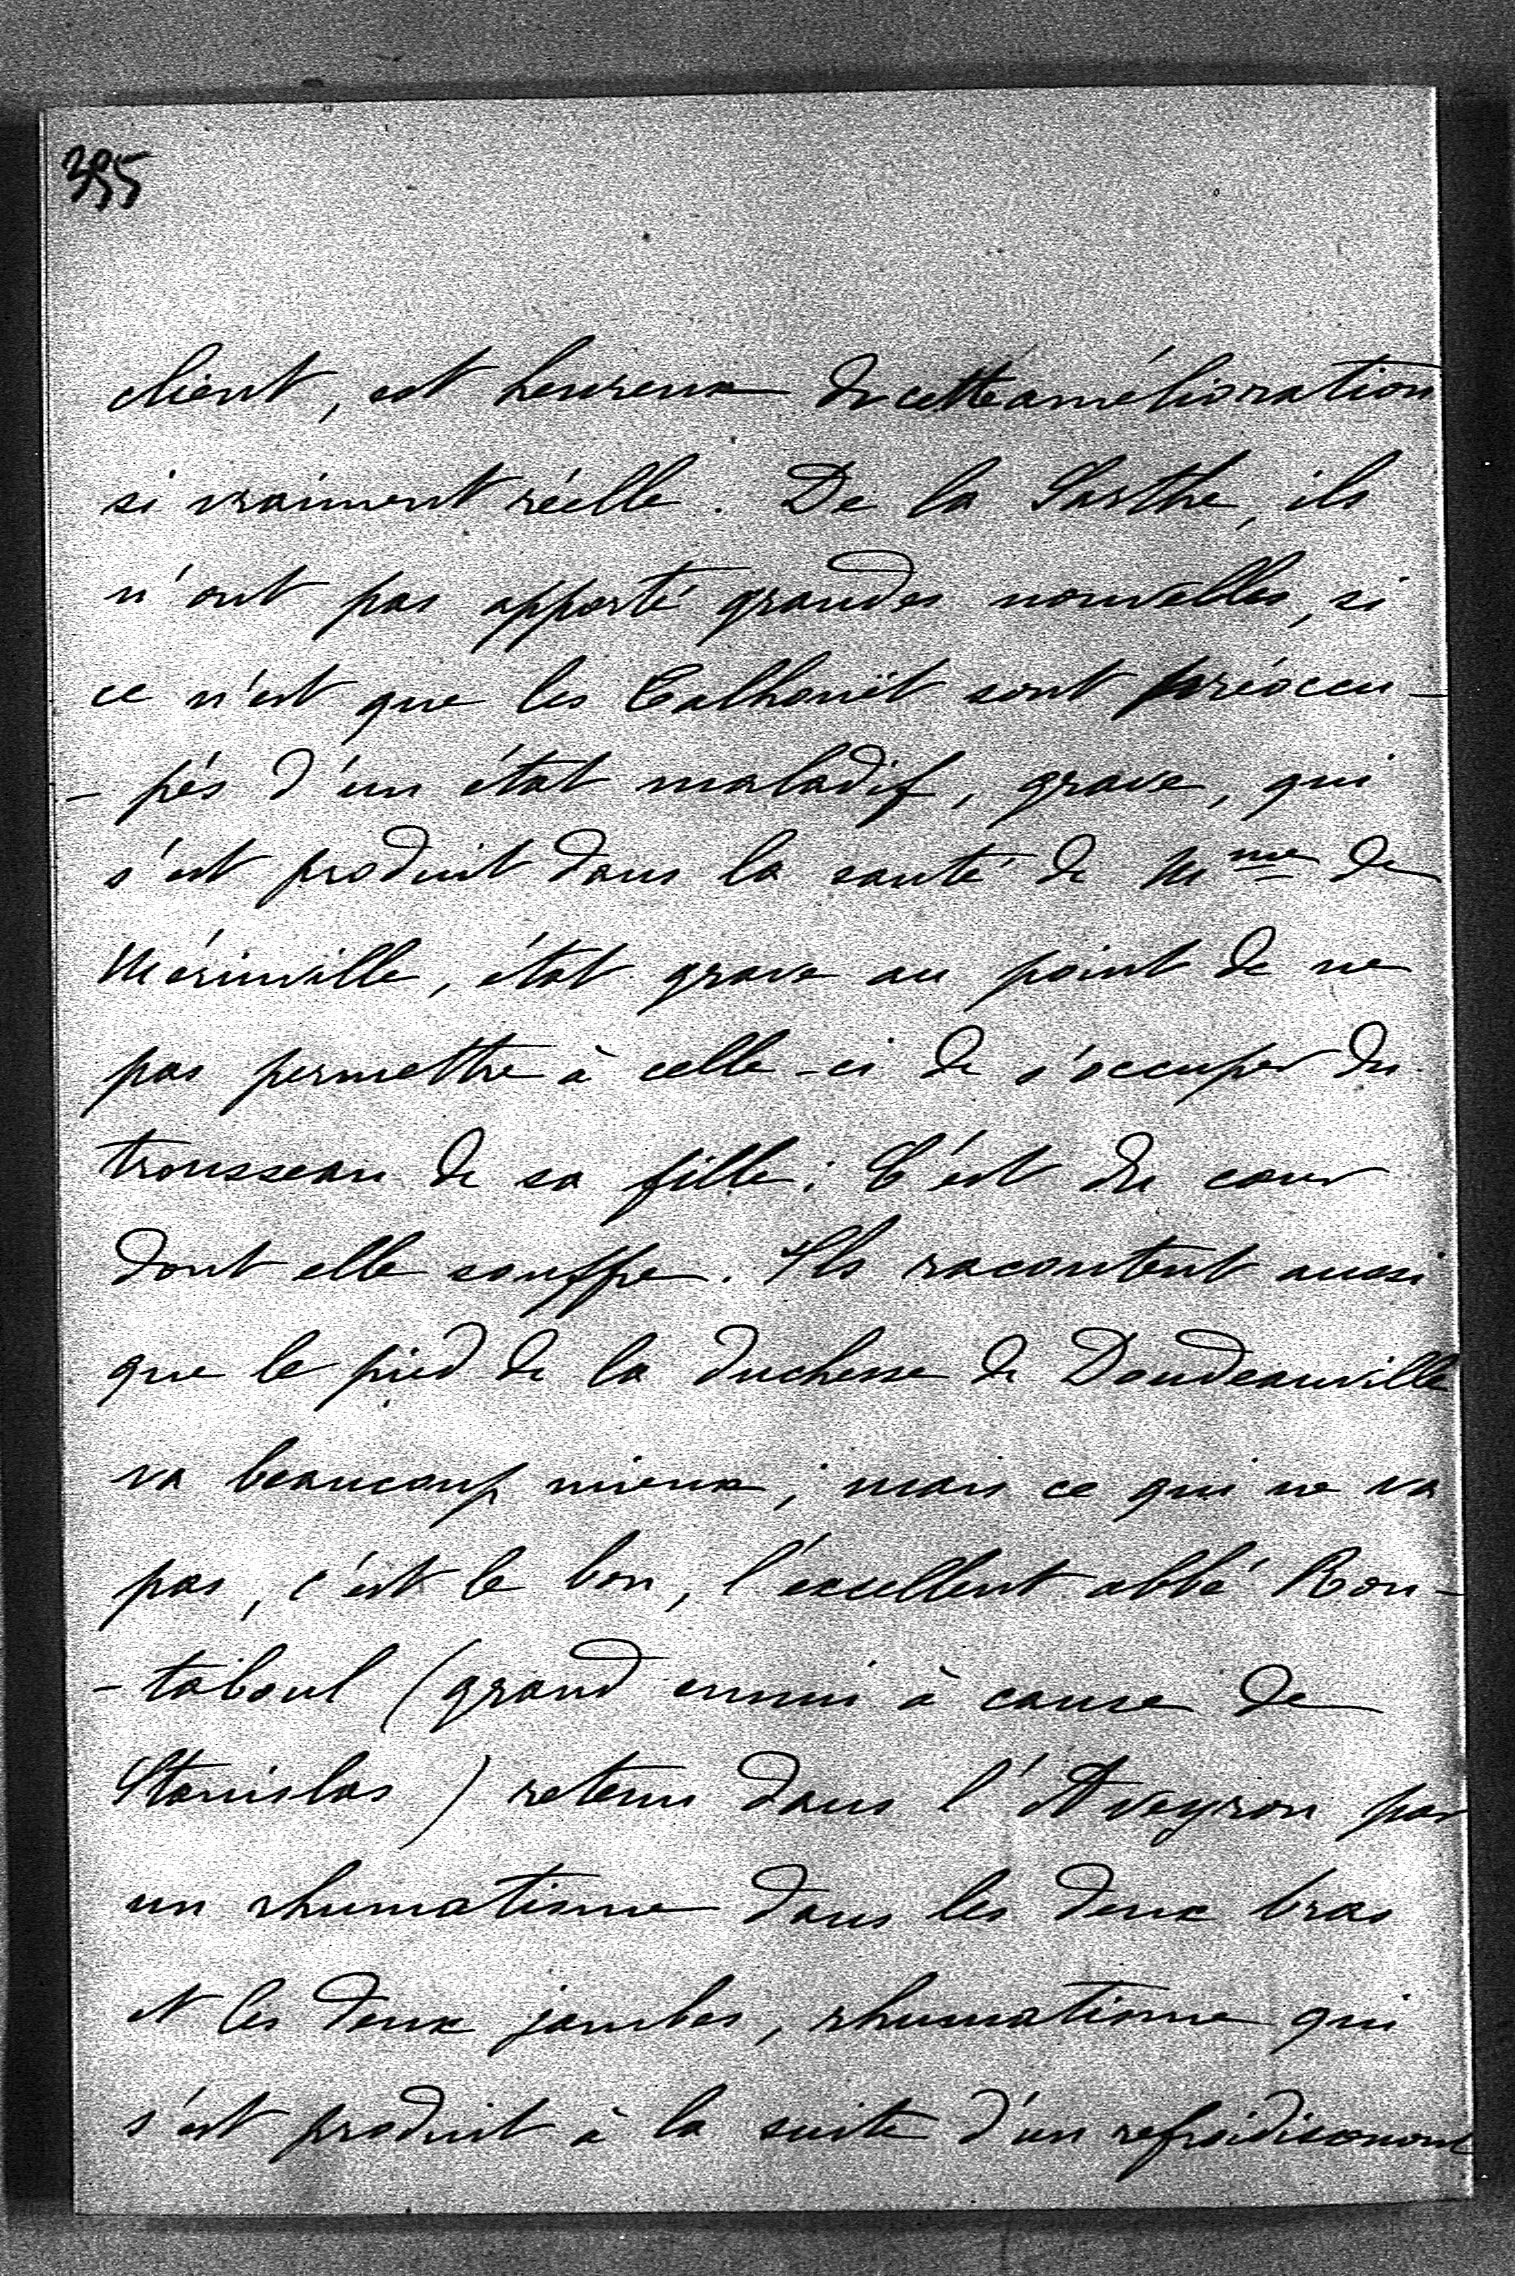 395
client, est heureux de cette amélioration
si vraiment réelle. De la Sarthe, ils
n'ont pas apporté grandes nouvelles, si
ce n'est que les Talhouët sont préoccu-
-pés d'un état maladif, grave, qui
s'est produit dans la santé de Mme de
Mérinville, état grave au point de ne
pas permettre à celle-ci de s'occuper du
trousseau de sa fille: C'est du cœur
dont elle souffre. Ils racontent aussi
que le pied de la duchesse de Doudeauville
va beaucoup mieux; mais ce qui ne va
pas, c'est le bon, l'excellent abbé Rou-
-taboul (grand ennui à cause de
Stanislas) retenu dans l'Aveyron par
un rhumatisme dans les deux bras
et les deux jambes, rhumatisme qui
s'est produit à la suite d'un refroidissement